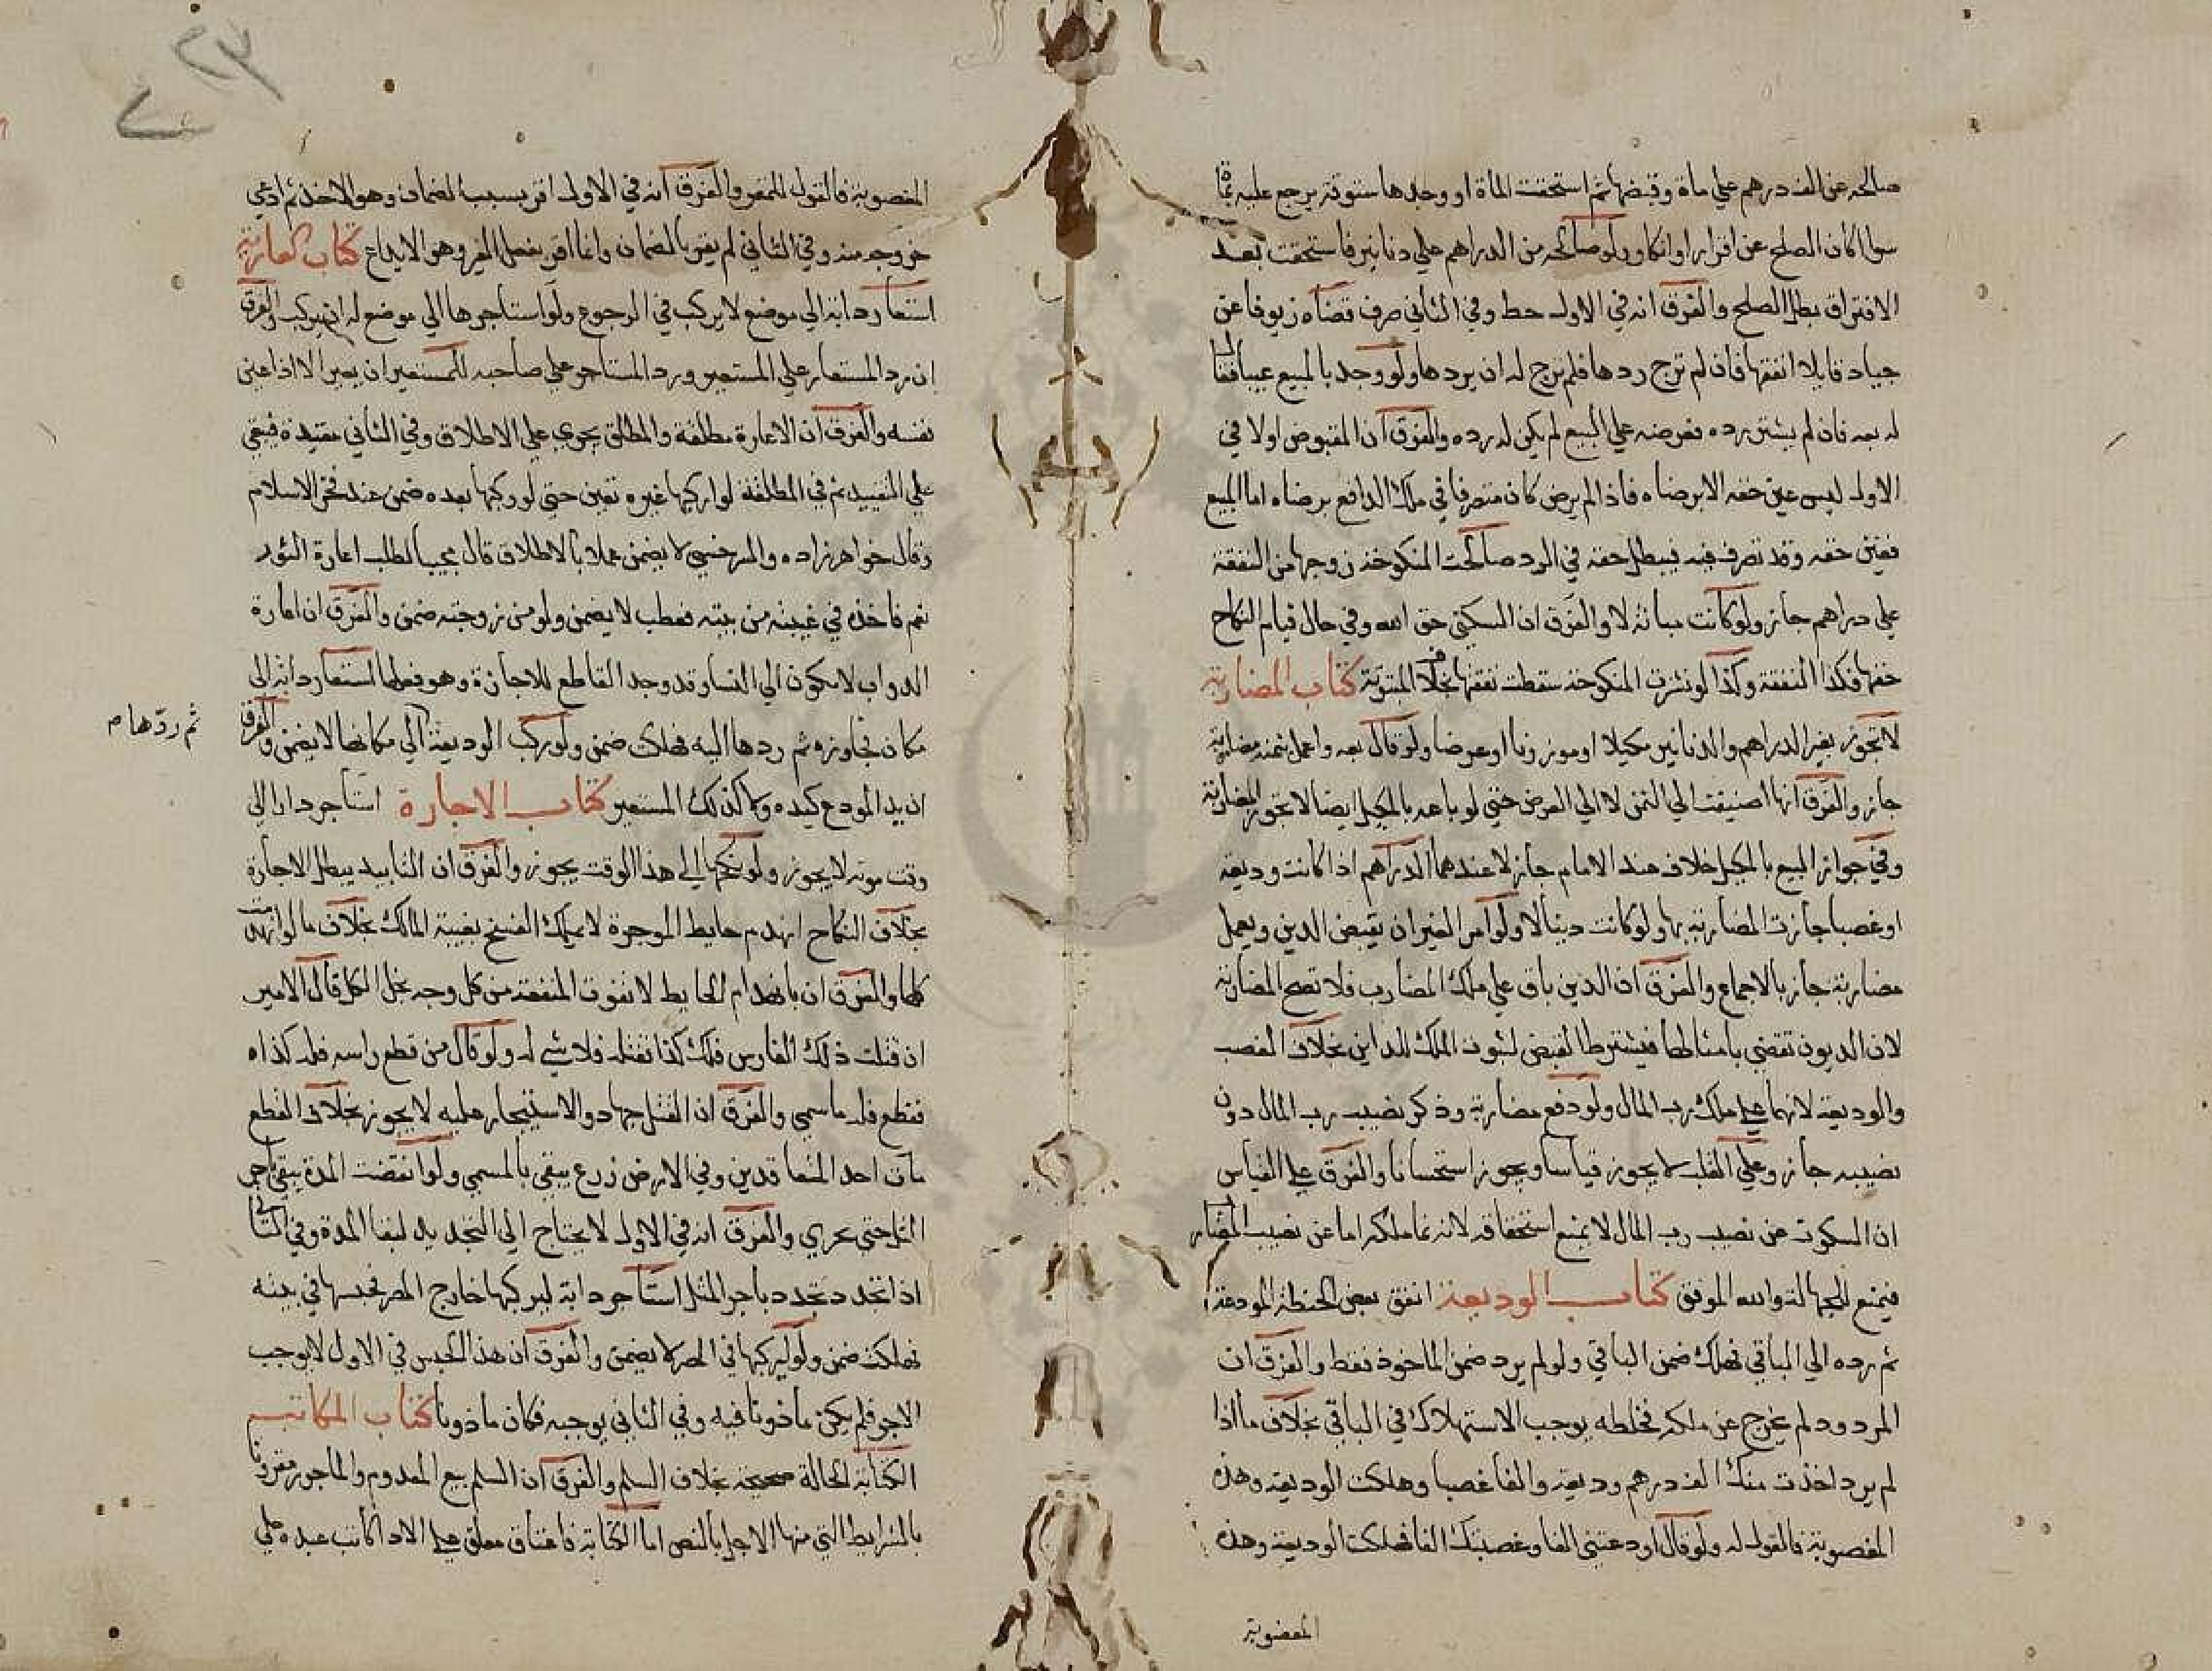 صالحه عن الف درهم علي ماة وقبضها ثم استحقت الماة او وجدها ستوقة يرجع عليه بماة
سوا كان الصلح عن اقرار او انكار ولو صالحه من الدراهم علي دنانير فاستحقت بعد
الافتراق بطل الصلح والفرق انه في الاول حط وفي الثاني صرف قضاه زيوفا عن
جياد قايلا انفقها فان لم ترج ردها فلم ترج له ان يردها ولو وجد بالمبيع عيبا فقال
له بعه فان لم يشتر رده فعرضه علي البيع لم يكن له رده والفرق ان المقبوض اولا في
الاول ليس عين حقه الا برضاه فاذا لم يرض كان متصرفا في ملك الدافع برضاه اما المبيع
فعين حقه وقد تصرف فيه فيبطل حقه في الرد صالحت المنكوحة زوجها من النفقة
علي دراهم جاز ولو كانت مبانة لا والفرق ان السكني حق الله وفي حال قيام النكاح
حقها فكذا النفقة وكذا لو نشزت المنكوحة سقطت نفقتها بخلاف المبتوتة كتاب المضاربة
لا تجوز بغير الدراهم والدنانير مكيلا او موزونا او عرضا ولو قال بعه واعمل بثمنه مضاربة
جاز والفرق انها اضيفت الي الثمن لا الي العرض حتي لو باعه بالمكيل ايضا لا تجوز المضاربة
وفي جواز البيع بالمكيل خلاف عند الامام جاز لا عندهما الدراهم اذا كانت وديعة
او غصبا جازت المضاربة بها ولو كانت دينا لا ولو امر الغير ان يقبض الدين ويعمل
مضاربة جاز بالاجماع والفرق ان الدين باق علي ملك المضارب فلا تصح المضاربة
لان الديون تقضي بامثالها فيشترط القبض لثبوت الملك للداين بخلاف الغصب
والوديعة لانهما علي ملك رب المال ولو دفع مضاربة وذكر نصيب رب المال دون
نصيبه جاز وعلي القلب لا يجوز قياسا ويجوز استحسانا والفرق علي القياس
ان السكوت عن نصيب رب المال لا يمنع استحقاقه لانه نما ملكه اما عن نصيب المضارب
فيمنع للجهالة والله الموفق كتاب الوديعة انفق بعض الحنطة المودعة
ثم رده الي الباقي فهلك ضمن الباقي ولو لم يرد ضمن الماخوذ فقط والفرق ان
المردود لم يخرج عن ملكه فخلطه يوجب الاستهلاك في الباقي بخلاف ما اذا
لم يرد اخذت منك الف درهم وديعة والفا غصبا وهلكت الوديعة وهذه
المغصوبة فالقول له ولو قال اودعتني الفا وغصبتك الفا فهلكت الوديعة وهذه
المغصوبة
المغصوبة فالقول للمقر والفرق انه في الاول اقر بسبب الضمان وهو الاخذ ثم ادعي
خروجه منه وفي الثاني لم يقر بالضمان وانما اقر بفعل الغير وهو الايداع كتاب العارية
استعار دابة الي موضع لا يركب في الرجوع ولو استاجرها الي موضع له ان يركب والفرق
ان رد المستعار علي المستعير ورد المستاجر علي صاحبه للمستعير ان يعير الا اذا عين
نفسه والفرق ان الاعارة مطلقة والمطلق يجري علي الاطلاق وفي الثاني مقيدة فيبقي
علي التقييد ثم في المطلقة لو اركبها غيره تعين حتي لو ركبها بعده ضمن عند فخر الاسلام
وقال خواهر زاده والسرخسي لا يضمن عملا بالاطلاق قال مجيبا لطلب اعارة الثور
نعم فاخذه في غيبته من بيته فعطب لا يضمن ولو من زوجته ضمن والفرق ان اعارة
الدواب لا تكون الي النسا وقد وجد القاطع للاجازة وهو فعلها استعار دابة الي
مكان فجاوزه ثم ردها اليه فهلك ضمن ولو ركب الوديعة الي مكانها لا يضمن والفرق
ثم ردّها م
ان يد المودع كيده ولا كذلك المستعير كتاب الاجارة استاجر دارا الي
وقت موته لا يجوز ولو نكحها الي هذا الوقت يجوز والفرق ان التابيد يبطل الاجارة
بخلاف النكاح انهدم حايط الموجرة لا يملك الفسخ بغيبة المالك بخلاف ما لو انهدمت
كلها والفرق ان بانهدام الحايط لا تفوت المنفعة من كل وجه بخلاف الكل قال الامير
ان قتلت ذلك الفارس فلك كذا فقتله فلا شي له ولو قال من قطع راسه فله كذا
فقطع فله ما سمي والفرق ان القتل جهاد والاستيجار عليه لا يجوز بخلاف القطع
مات احد المتعاقدين وفي الارض زرع يبقي بالمسمي ولو انقضت المدة يبقي باجر
المثل حتي والفرق انه في الاول لا يحتاج الي التجديد لبقا المدة وفي الثاني
اذا تجدد تجدد باجر المثل استاجر دابة ليركبها خارج المصر فحبسها في بيته
فهلكت ضمن ولو ليركبها في المصر لا يضمن والفرق ان هذا الحبس في الاول لا يوجب
الاجر فلم يكن ماذونا فيه وفي الثاني يوجبه فكان ماذونا كتاب المكاتب
الكتابة الحالة صحيحة بخلاف السلم والفرق ان السلم بيع المعدوم والماجور مقرونا
بالشرايط التي منها الاجل بالنص اما الكتابة فاعتاق معلق علي الادا كاتب عبده علي